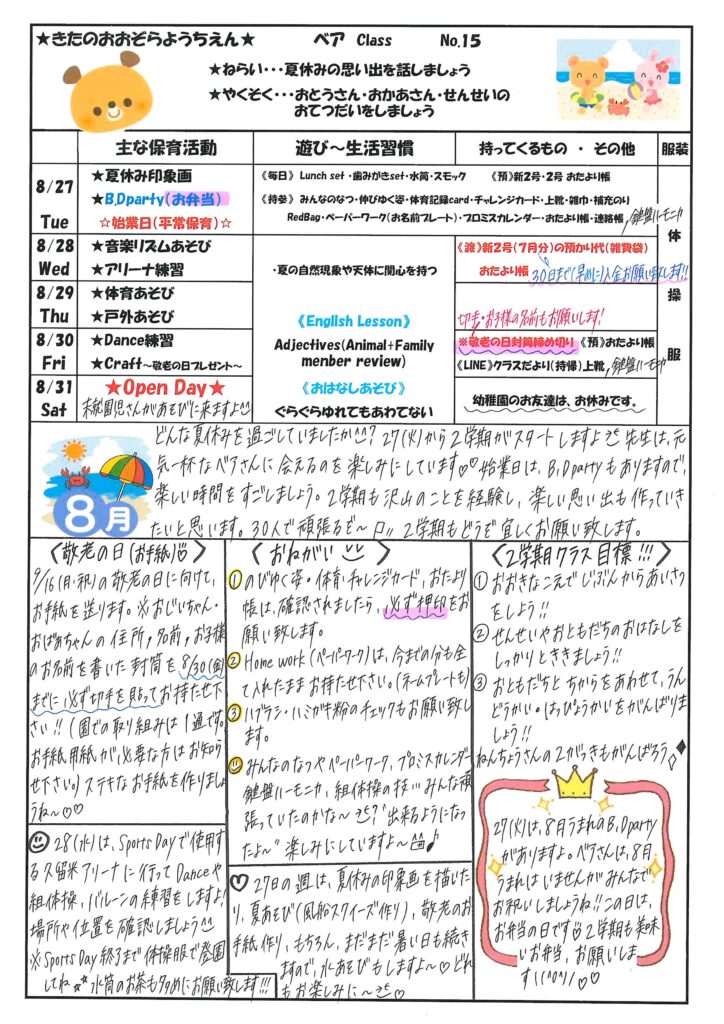 ★きたのおおぞらようちえん★ ベア Class No.15
★ねらい・・・夏休みの思い出を話しましょう
★やくそく・・・おとうさん・おかあさん・せんせいの
おてつだいをしましょう
主な保育活動 遊び～生活習慣 持ってくるもの ・ その他 服装
8/27
Tue
★夏休み印象画
★B,Dparty(お弁当)
☆始業日(平常保育)☆
《毎日》 Lunch set ・歯みがきset・水筒・スモック 《預》新2号・2号 おたより帳
《持参》 みんなのなつ・伸びゆく姿・体育記録card・チャレンジカード・上靴・雑巾・補充のり
RedBag・ペーパーワーク(お名前プレート)・プロミスカレンダー・おたより帳・連絡帳,鍵盤ハーモニカ
8/28
Wed
★音楽リズムあそび
★アリーナ練習
8/29
Thu
★体育あそび
★戸外あそび
8/30
Fri
★Dance練習
★Craft～敬老の日プレゼント～
8/31
Sat
★Open Day★
未就園児さんがあそびに来ますよ
・夏の自然現象や天体に関心を持つ
《English Lesson》
Adjectives(Animal+Family
menber review)
《おはなしあそび》
ぐらぐらゆれてもあわてない
《渡》新2号(7月分)の預かり代(雑費袋)
おたより帳 30日まで(早めに)入金お願い致します!!
切手・お子様の名前もお願いします!
※敬老の日封筒締め切り 《預》おたより帳
《LINE》クラスだより《持帰》上靴,鍵盤ハーモニカ
幼稚園のお友達は、お休みです。
体
操
服
8月
どんな夏休みを過ごしていましたか? 27(火)から2学期がスタートしますよ 先生は、元
気一杯なベアさんに会えるのを楽しみにしています♡♡始業日は、B,Dpartyもありますので、
楽しい時間をすごしましょう。2学期も沢山のことを経験し、楽しい思い出も作っていき
たいと思います。30人で頑張るぞ～!! 2学期もどうぞ宜しくお願い致します。
〈敬老の日(お手紙)〉
9/16(月・祝)の敬老の日に向けて、
お手紙を送ります。※おじいちゃん・
おばあちゃんの住所,名前,お子様
のお名前を書いた封筒を8/30(金)
までに必ず切手を貼ってお持たせ下
さい!! (園での取り組みは1通です。
お手紙用紙が必要な方はお知ら
せ下さい。)ステキなお手紙を作りまし
ょうね～♡♡
28(水)は、Sports Dayで使用す
る久留米アリーナに行ってDanceや
組体操、バルーンの練習をしますよ!
場所や位置を確認しましょう^^
※Sports Day終了まで体操服で登園
してね 水筒のお茶も多めにお願い致します!!!
〈おねがい〉
①のびゆく姿・体育・チャレンジカード、おたより
帳は、確認されましたら、必ず押印をお
願い致します。
②Home work(ペーパーワーク)は、今までの分も全
て入れたままお持たせ下さい。(ネームプレートも)
③ハブラシ・ハミガキ粉のチェックもお願い致し
ます。
みんなのなつやペーパーワーク、プロミスカレンダー
鍵盤ハーモニカ、組体操の技… みんな頑
張っていたのかな～?"出来るようになっ
たよ～"楽しみにしていますよ～♪
♡27日の週は、夏休みの印象画を描いた
り、夏あそび(風船スクイーズ作り)、敬老のお
手紙作り、もちろん、まだまだ暑い日も続き
ますので、水あそびもしますよ～♡どれ
もお楽しみに～♡
〈2学期クラス目標!!!〉
①おおきなこえでじぶんからあいさつ
をしよう!!
②せんせいやおともだちのおはなしを
しっかりとききましょう!!
③おともだちとちからをあわせて、うん
どうかい。はっぴょうかいをがんばりま
しょう!!
ねんちょうさんの2がっきもがんばろう
27(火)は、8月うまれのB,Dparty
がありますよ。ベアさんは、8月
うまれはいませんがみんなで
お祝いしましょうね!!この日は、
お弁当の日です 2学期も美味し
いお弁当、お願いしま
す\(^o^)/♡♡